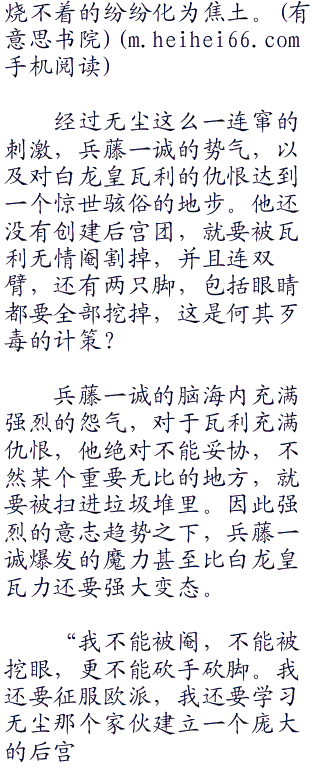 烧不着的纷纷化为焦土。(有
意思书院)(m.heihei66.com
手机阅读)
经过无尘这么一连窜的
刺激，兵藤一诚的势气，以
及对白龙皇瓦利的仇恨达到
一个惊世骇俗的地步。他还
没有创建后宫团，就要被瓦
利无情阉割掉，并且连双
臂，还有两只脚，包括眼睛
都要全部挖掉，这是何其歹
毒的计策？
兵藤一诚的脑海内充满
强烈的怨气，对于瓦利充满
仇恨，他绝对不能妥协，不
然某个重要无比的地方，就
要被扫进垃圾堆里。因此强
烈的意志趋势之下，兵藤一
诚爆发的魔力甚至比白龙皇
瓦力还要强大变态。
“我不能被阉，不能被
挖眼，更不能砍手砍脚。我
还要征服欧派，我还要学习
无尘那个家伙建立一个庞大
的后宫